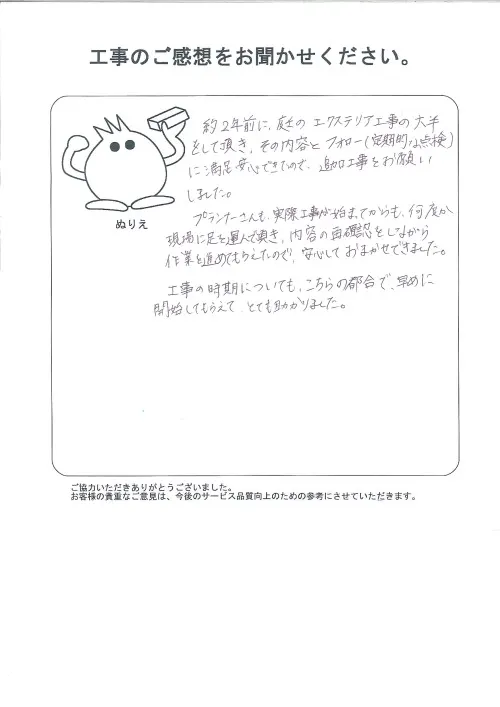 工事のご感想をお聞かせください。
約2年前に、庭のエクステリア工事の大半
をして頂き、その内容とフォロー(定期的な点検)
に満足、安心できたので、追加工事をお願い
しました。
ぬりえ
プランナーさんも、実際工事が始まってからも、何度か
現場に足を運んで頂き、内容の再確認をしながら
作業を進めてもらえたので、安心しておまかせできました。
工事の時期についても、こちらの都合で、早めに
開始してもらえて、とても助かりました。
ご協力いただきありがとうございました。
お客様の貴重なご意見は、今後のサービス品質向上のための参考にさせていただきます。